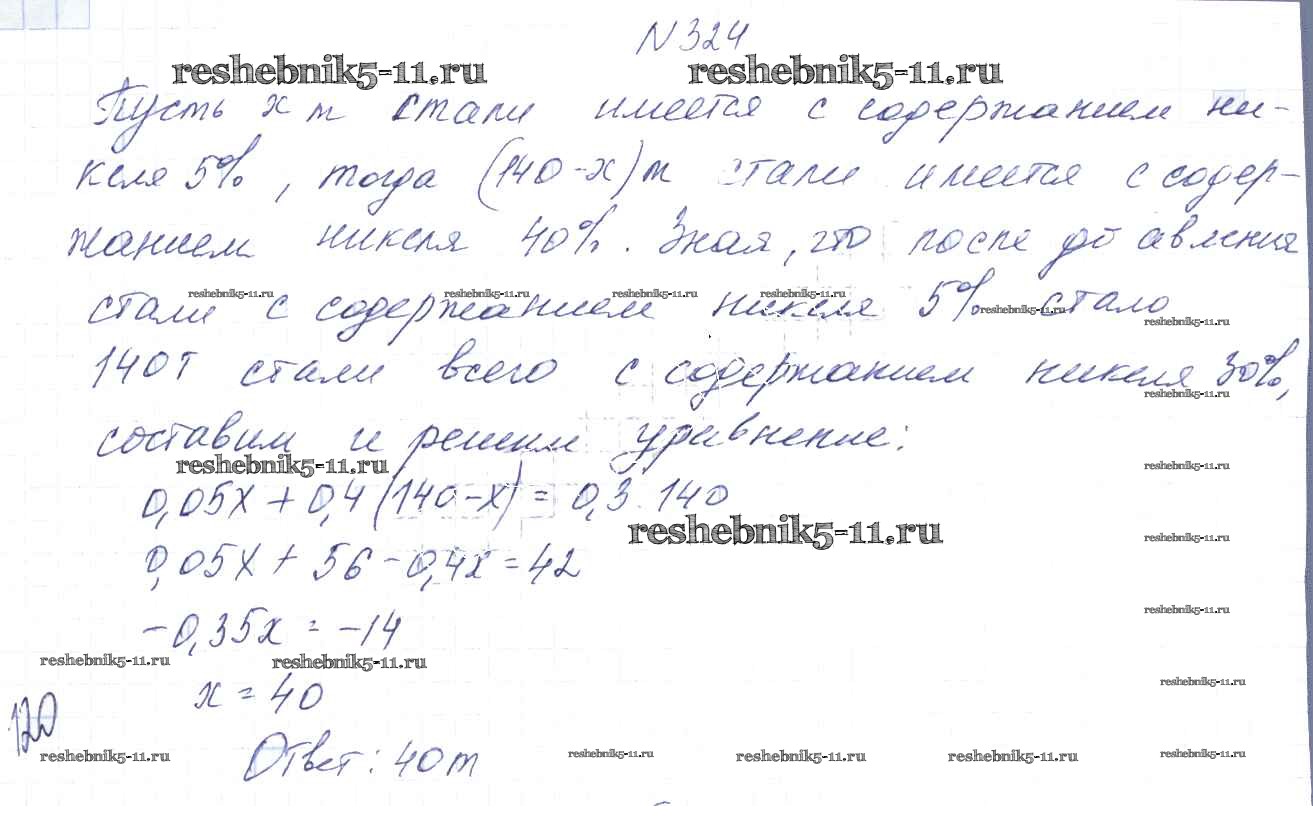 N324
reshebnik5-11.ru reshebnik5-11.ru
Пусть х т стали имеется с содержанием ни-
келя 5%, тогда (140-х)т стали имеется с содер-
жанием никеля 40%. Зная, что после добавления
reshebnik5-11.ru reshebnik5-11.ru reshebnik5-11.ru reshebnik5-11.ru
стали с содержанием никеля 5% стало
reshebnik5-11.ru reshebnik5-11.ru
140т стали всего с содержанием никеля 30%,
reshebnik5-11.ru
составим и решим уравнение:
reshebnik5-11.ru reshebnik5-11.ru
0,05х + 0,4(140-х) = 0,3·140
reshebnik5-11.ru reshebnik5-11.ru
0,05х + 56 - 0,4х = 42
reshebnik5-11.ru
-0,35х = -14
reshebnik5-11.ru reshebnik5-11.ru
х = 40 reshebnik5-11.ru
120
Ответ: 40т
reshebnik5-11.ru reshebnik5-11.ru reshebnik5-11.ru reshebnik5-11.ru reshebnik5-11.ru